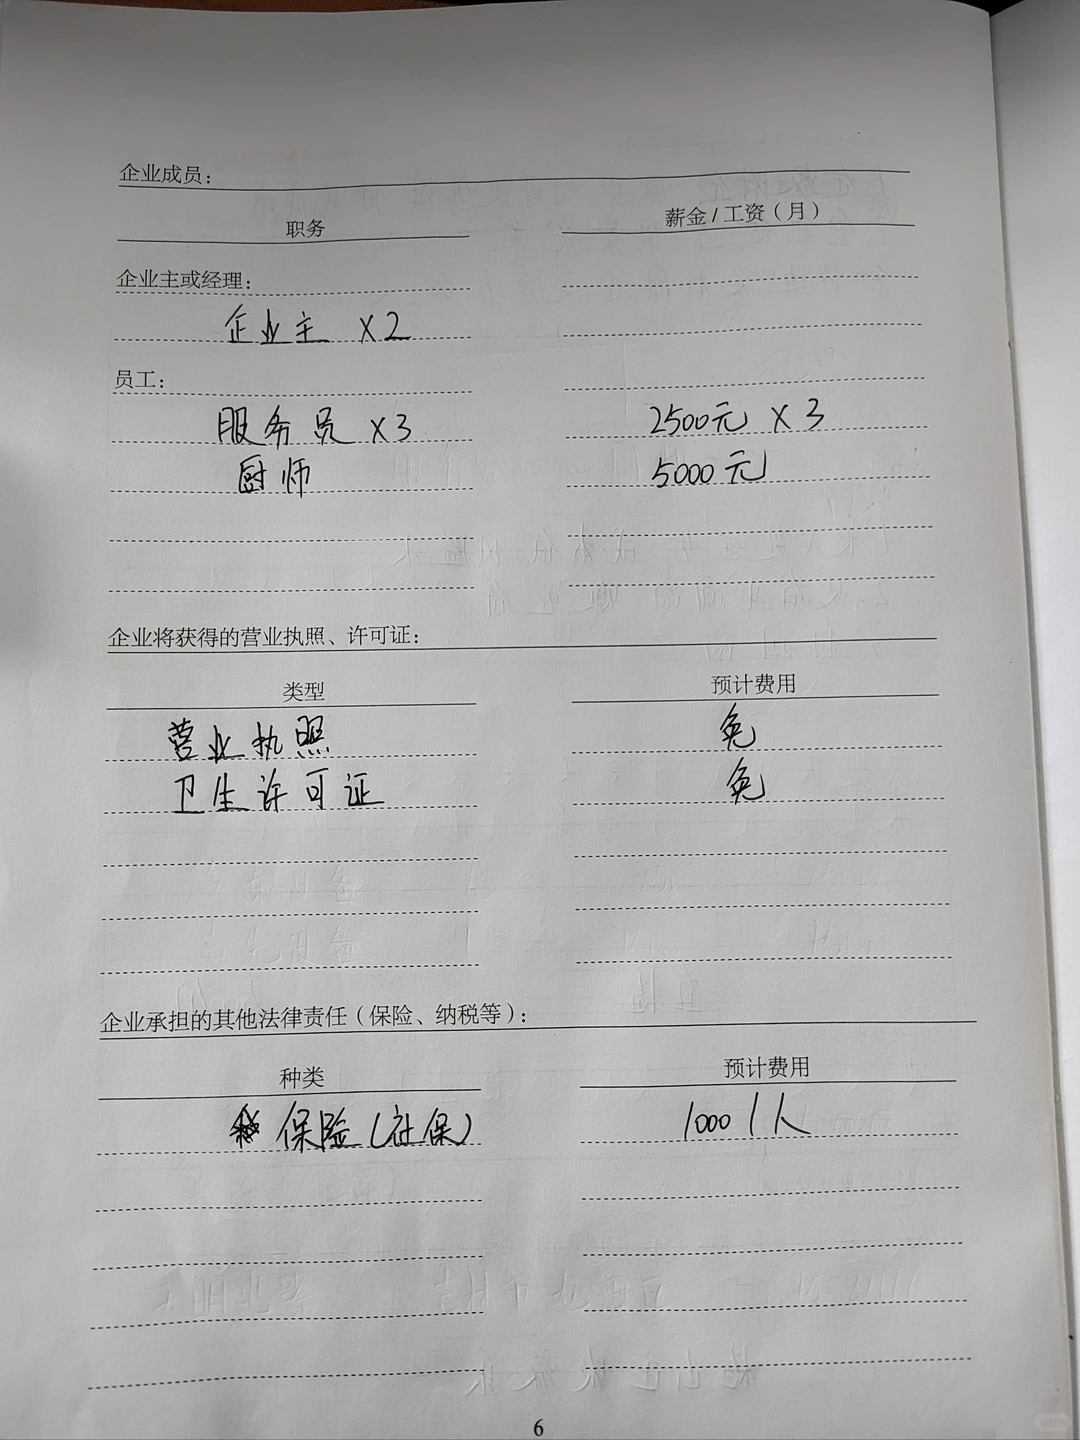 企业成员：
职务 薪金/工资（月）
企业主或经理：
企业主 X2
员工：
服务员 X3 2500元 X 3
厨师 5000元
企业将获得的营业执照、许可证：
类型 预计费用
营业执照 免
卫生许可证 免
企业承担的其他法律责任（保险、纳税等）：
种类 预计费用
保险（社保） 1000/人
6